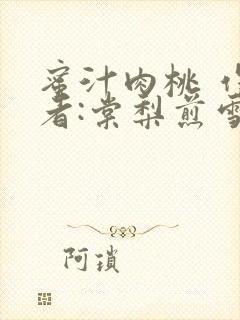 蜜汁肉桃 作
者:棠梨煎雪
阿琐